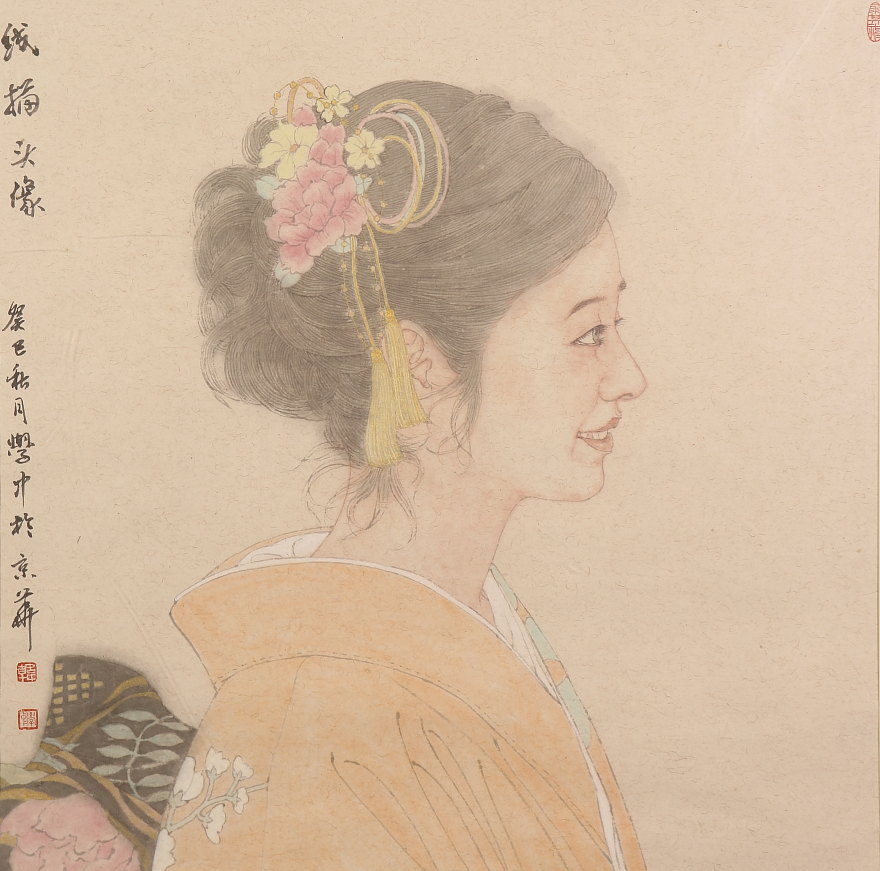 线描头像
癸巳秋月学中於京华